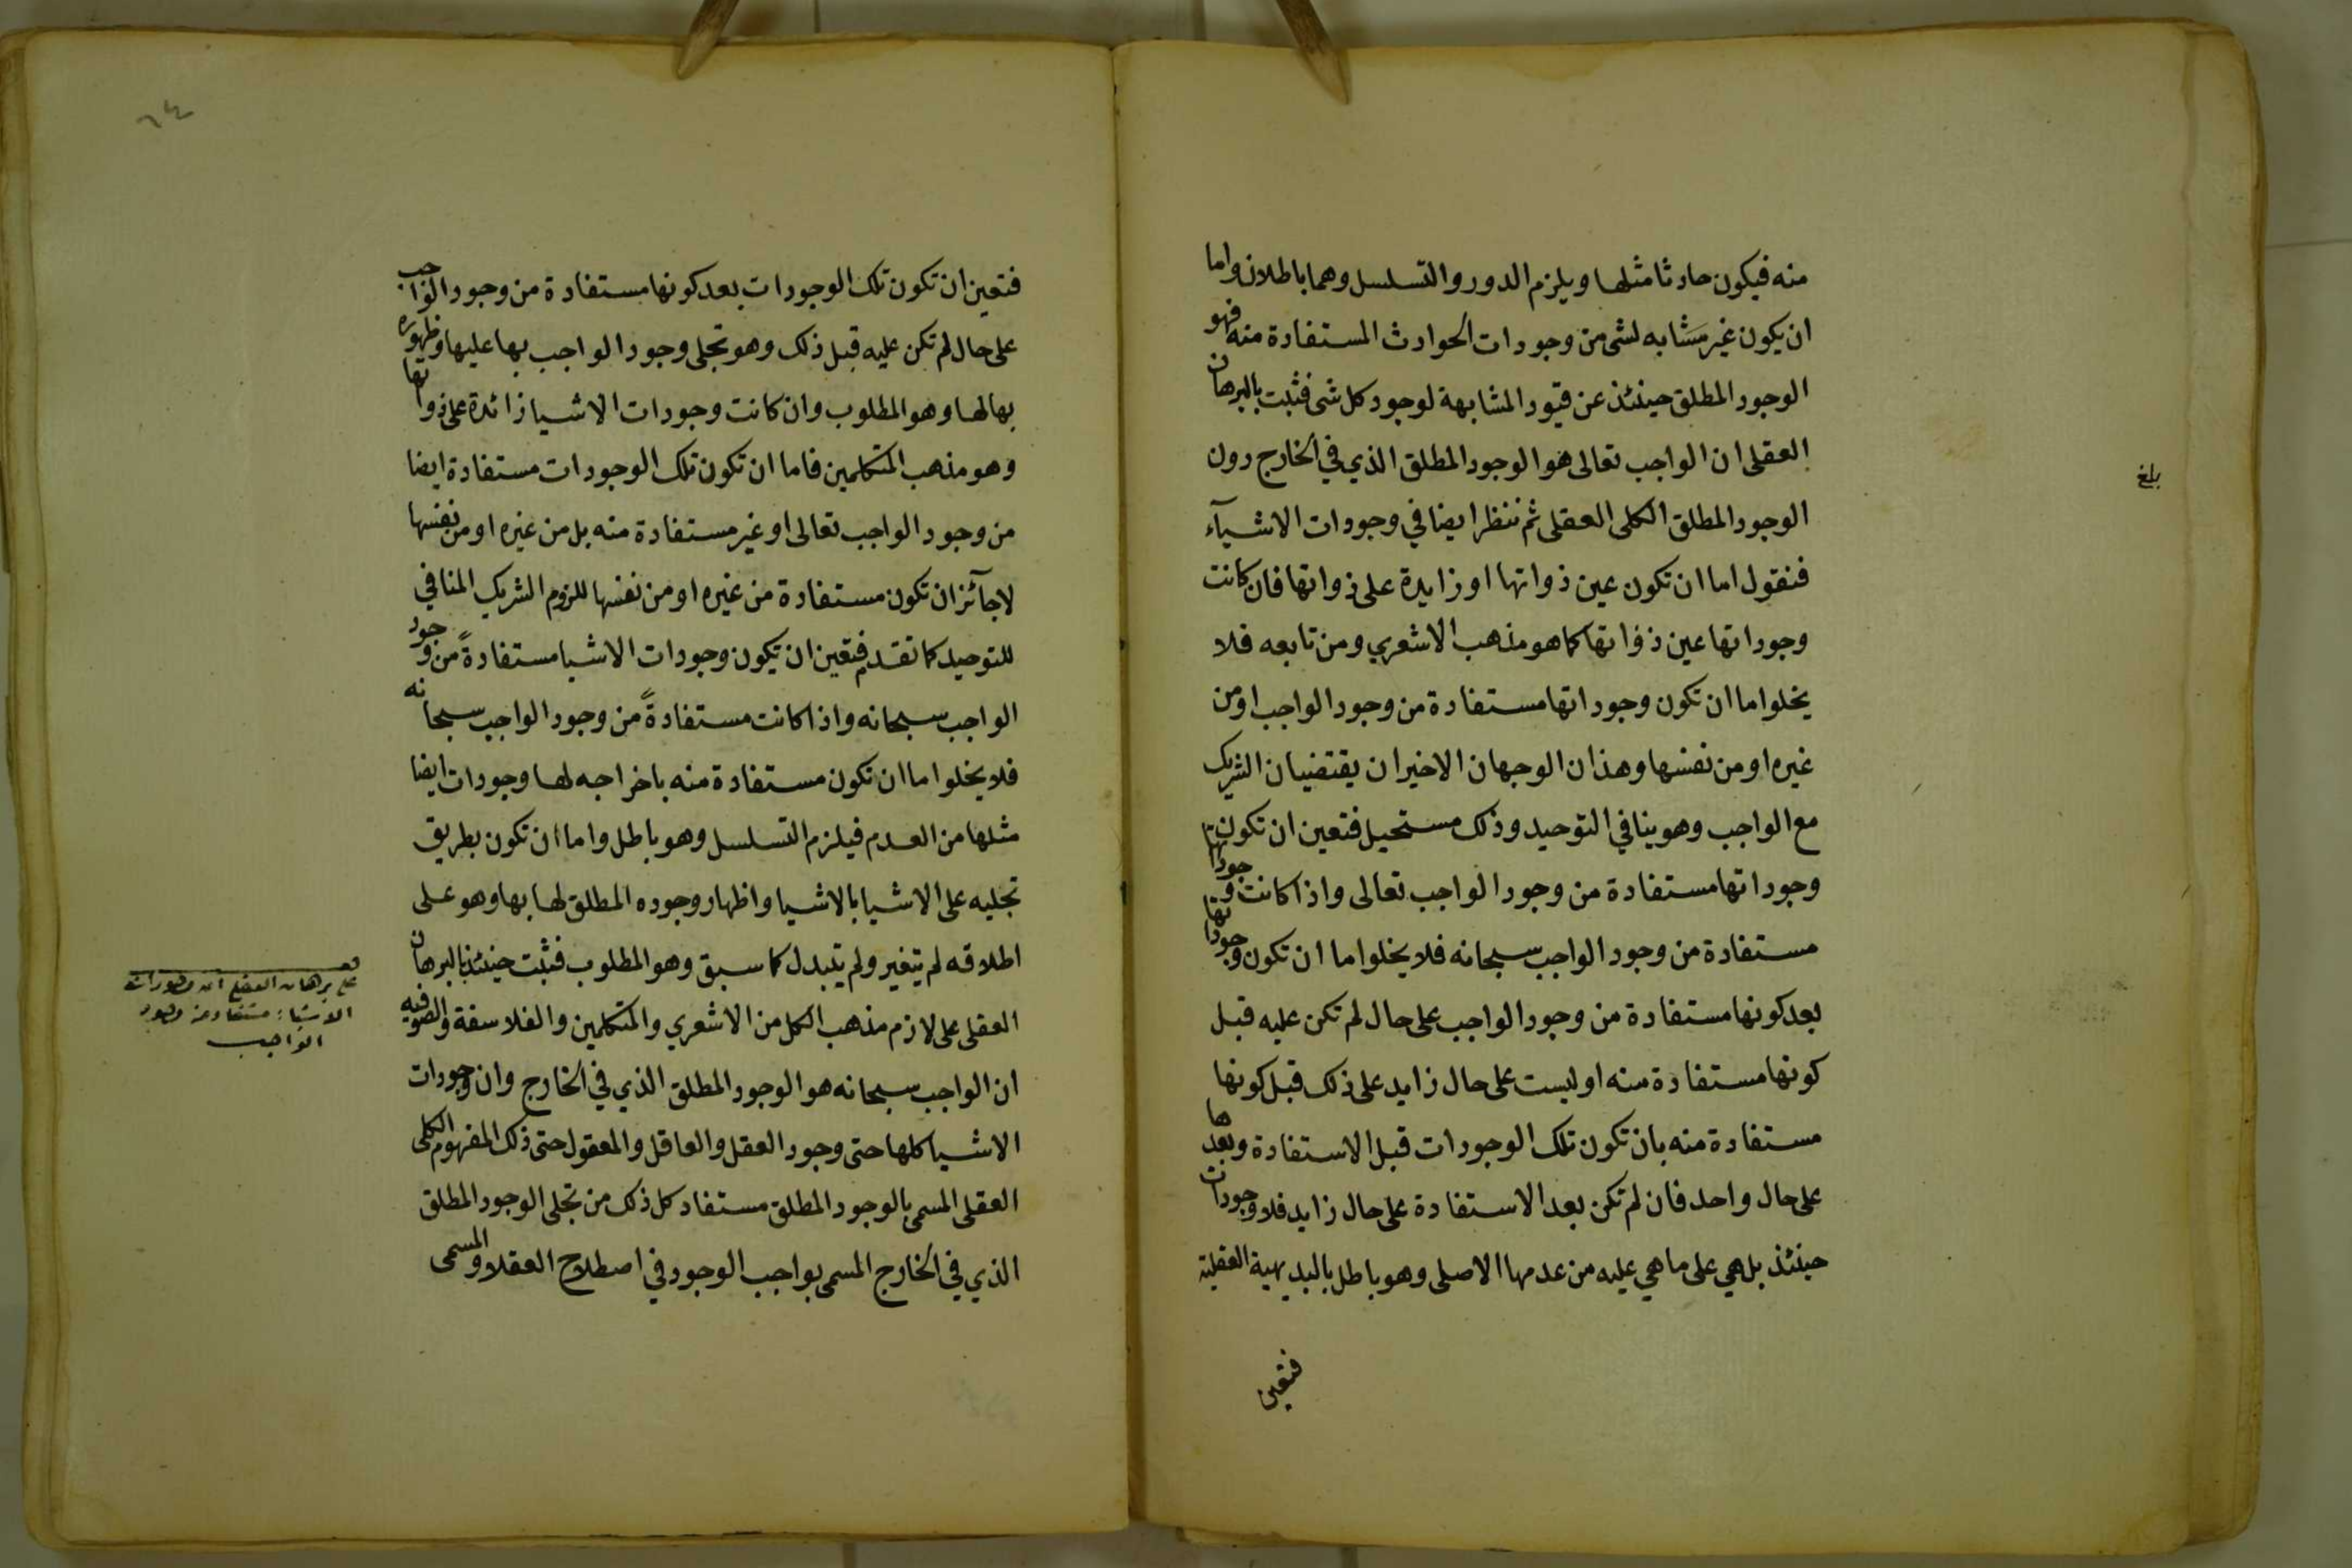 منه فيكون حادثا مثلها ويلزم الدور والتسلسل وهما باطلان واما
ان يكون غير مشابه لشى من وجودات الحوادث المستفادة منه فهو
الوجود المطلق حينئذ عن قيود المشابهة لوجود كل شى فثبت بالبرهان
العقلى ان الواجب تعالى هو الوجود المطلق الذي في الخارج دون
بلغ
الوجود المطلق الكلى العقلى ثم ننظر ايضا في وجودات الاشيآء
فنقول اما ان تكون عين ذواتها او زايدة على ذواتها فان كانت
وجوداتها عين ذواتها كما هو مذهب الاشعري ومن تابعه فلا
يخلوا ما ان تكون وجوداتها مستفادة من وجود الواجب او من
غيره او من نفسها وهذان الوجهان الاخيران يقتضيان الشريك
مع الواجب وهو ينافي التوحيد وذلك مستحيل فتعين ان تكون
وجوداتها مستفادة من وجود الواجب تعالى واذا كانت وجوداتها
مستفادة من وجود الواجب سبحانه فلا يخلوا ما ان تكون وجوداتها
بعد كونها مستفادة من وجود الواجب على حال لم تكن عليه قبل
كونها مستفادة منه او ليست على حال زايد على ذلك قبل كونها
مستفادة منه بان تكون تلك الوجودات قبل الاستفادة وبعدها
على حال واحد فان لم تكن بعد الاستفادة على حال زايد فلا وجودات
حينئذ بل هي على ما هي عليه من عدمها الاصلى وهو باطل بالبديهية العقلية
فتعين
٦٤
فتعين ان تكون تلك الوجودات بعد كونها مستفادة من وجود الواجب
على حال لم تكن عليه قبل ذلك وهو تجلى وجود الواجب بها عليها وظهوره
بها لها وهو المطلوب وان كانت وجودات الاشيا زائدة على ذواتها
وهو مذهب المتكلمين فاما ان تكون تلك الوجودات مستفادة ايضا
من وجود الواجب تعالى او غير مستفادة منه بل من غيره او من نفسها
لا جآئز ان تكون مستفادة من غيره او من نفسها للزوم الشريك المنافي
للتوحيد كما تقدم فتعين ان تكون وجودات الاشيا مستفادةً من وجود
الواجب سبحانه واذا كانت مستفادةً من وجود الواجب سبحانه
فلا يخلوا ما ان تكون مستفادة منه باخراجه لها وجودات ايضا
مثلها من العدم فيلزم التسلسل وهو باطل واما ان تكون بطريق
تجليه على الاشيا بالاشيا واظهار وجوده المطلق لها بها وهو على
اطلاقه لم يتغير ولم يتبدل كما سبق وهو المطلوب فثبت حينئذ بالبرهان
العقلى على لازم مذهب الكل من الاشعري والمتكلمين والفلاسفة والصوفيه
ان الواجب سبحانه هو الوجود المطلق الذي في الخارج وان وجودات
الاشيا كلها حتى وجود العقل والعاقل والمعقول حتى ذلك المفهوم الكلى
العقلى المسمى بالوجود المطلق مستفاد كل ذلك من تجلى الوجود المطلق
الذي في الخارج المسمى بواجب الوجود في اصطلاح العقلا والمسمى
على برهان العقلي ان وجودات
الاشيا مستفادة من وجود
الواجب